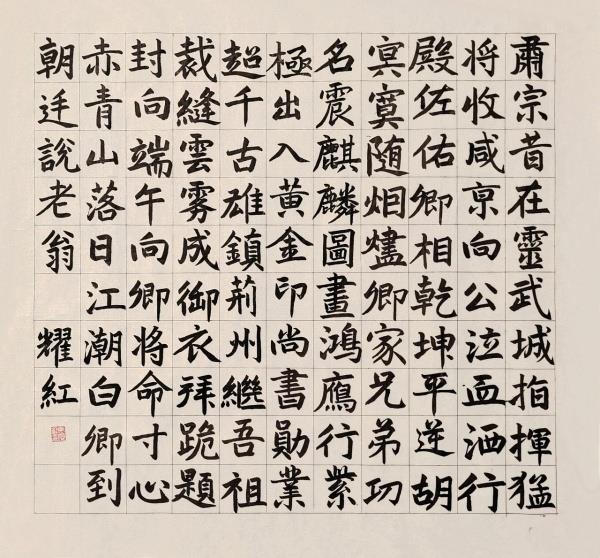 肅宗昔在靈武城指揮猛
将收咸亰向公泣血洒行
殿佐佑卿相乾坤平逆胡
冥寞随烟燼卿家兄弟功
名震麒麟圖畫鴻鴈行紫
極出入黄金印尚書勛業
超千古雄鎮荊州繼吾祖
裁縫雲雾成御衣拜跪題
封向端午向卿将命寸心
赤青山落日江潮白卿到
朝廷說老翁 耀紅